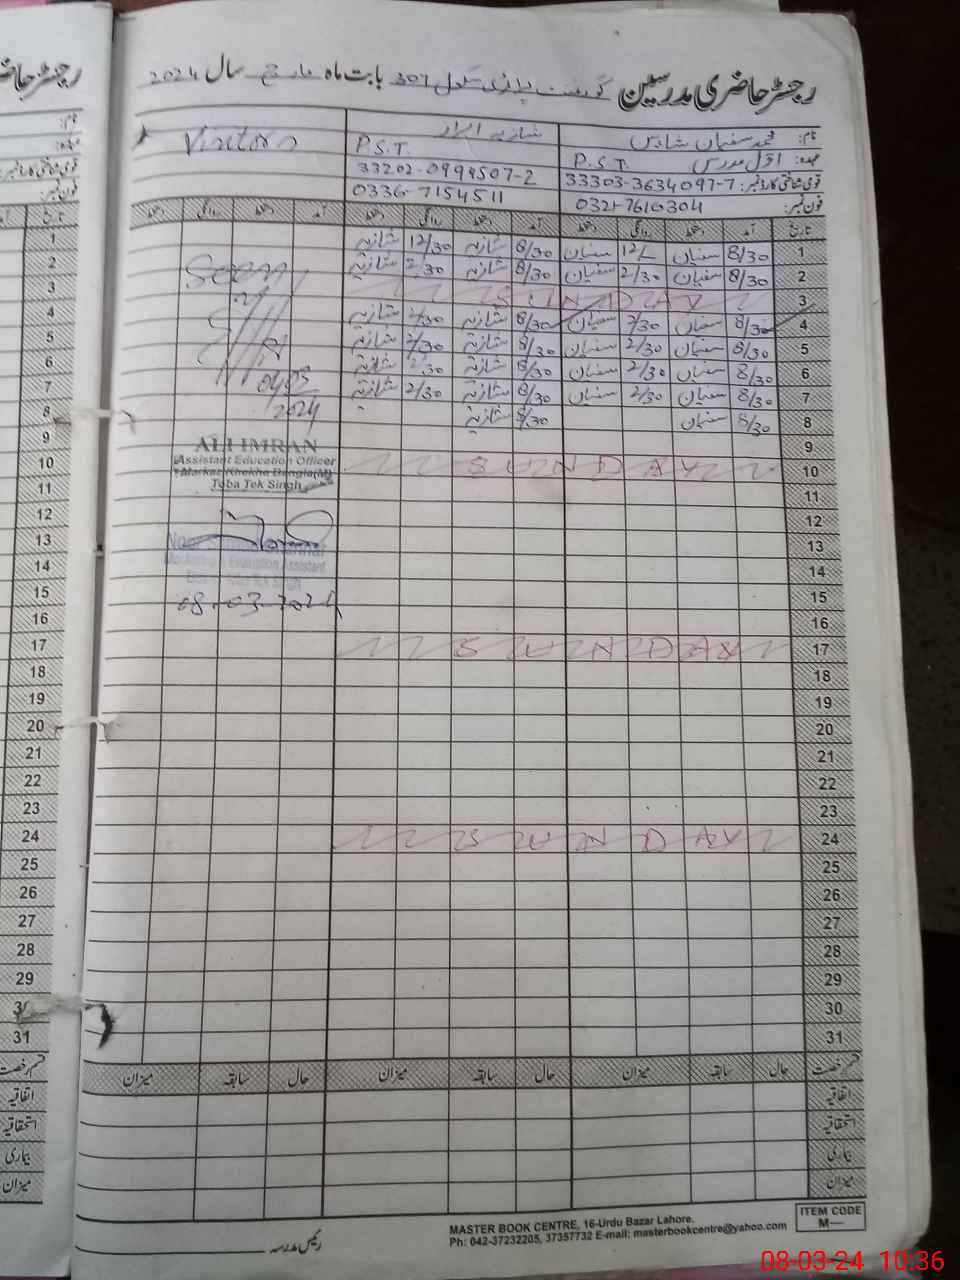 رجسٹر حاضری مدرسین گورنمنٹ پرائمری سکول 307 بابت ماہ مارچ سال 2024
نام: محمد سفیان شازیہ ابرار Visitors
عہدہ: اوّل مدرس P.S.T. P.S.T.
قومی شناختی کارڈ نمبر: 33303-3634097-7 33202-0994507-2
فون نمبر: 0321-7616304 0336-7154511
تاریخ آمد دستخط روانگی دستخط آمد دستخط روانگی دستخط آمد دستخط روانگی دستخط
1 8/30 سفیان سفیان 8/30 شازیہ 12/30 شازیہ
2 8/30 سفیان 2/30 سفیان 8/30 شازیہ 2/30 شازیہ Seen
3 SUNDAY
4 8/30 سفیان 2/30 سفیان 8/30 شازیہ 2/30 شازیہ
5 8/30 سفیان 2/30 سفیان 8/30 شازیہ 2/30 شازیہ
6 8/30 سفیان 2/30 سفیان 8/30 شازیہ 2/30 شازیہ
7 8/30 سفیان 2/30 سفیان 8/30 شازیہ 2/30 شازیہ
8 8/30 سفیان 8/30 شازیہ 2024
9 ALI IMRAN
Assistant Education Officer
10 SUNDAY
Toba Tek Singh
11
12
13
14
15 08-03-2024
16
17 SUNDAY
18
19
20
21
22
23
24 SUNDAY
25
26
27
28
29
30
31
قسم رخصت حال سابقہ میزان حال سابقہ میزان حال سابقہ میزان
اتفاقیہ
استحقاقیہ
بیماری
میزان
رئیس مدرسہ
MASTER BOOK CENTRE, 16-Urdu Bazar Lahore.
Ph: 042-37232205, 37357732 E-mail: masterbookcentre@yahoo.com
ITEM CODE
M—
08-03-24 10:36